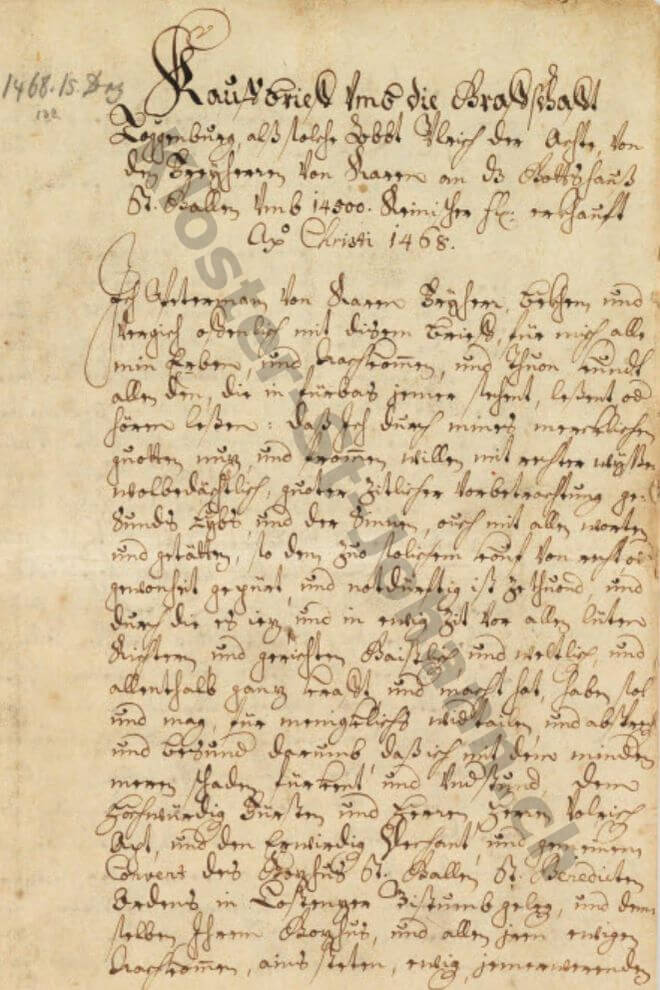 1468. 15. Dez
Kauffbrieff vmb die Graffschafft
Toggenburg, alß solche Abbt Vlrich der Achte, von
den Freyherren von Raren an dz Gottshauß
St. Gallen vmb 14500. Reinischer fl: erkhaufft
Aō Christi 1468.
Ich Peterman von Raren Fryherr, bekhen und
vergich offenlich mit disem brieff, für mich alle
min Erben, und Nachkommen, und thuon kundt
allen den, die in fürbas jemer sehent, leßent od
hören leßen: daß Ich durch mines mercklichen
guotten nuz, und frommen willen mit rechter wyßen
wolbedächtlich, guoter zitlicher vorbetrachtung ge¬
sunds Lybs, und der Sinnen, ouch mit allen worten
und getätten, so dem zuo solichem kouf von recht, od
gewonheit gepürt, und notdürftig ist zethuond, und
durch die es iez, und in ewig Zit vor allen lüten
Richtern und gerichten Gaistlich und weltlich, und
allenthalb ganz krafft und macht hat, haben sol
und mag, für menigklichs widertailen, und absprechen
und besund darumb, daß ich mit dem minden
meren schaden fürkent und vnderstund, dem
Hochwürdig Fürsten und Herren, Herrn Volrich
Apt, und den Erwirdig Dechant, und gemeinem
Convent des Gozhus St. Gallen, St. Benedicten
Ordens in Costenzer Bistumb geleg, und dem
selben Ihrem Gozhus, und allen jren ewigen
Nachkommen, ains steten, ewig, jemerwerenden
Kloster-St-Johann.ch